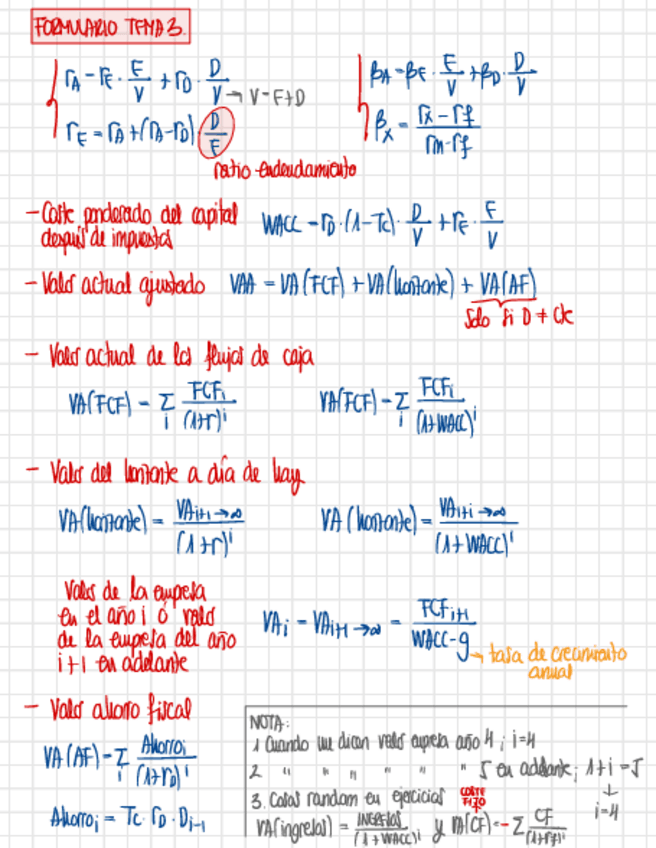 FORMULARIO TEMA 3.
rA = rE · E/V + rD · D/V → V = E+D
βA = βE · E/V + βD · D/V
rE = rA + (rA - rD) D/E
βx = rx - rf / rm - rf
ratio endeudamiento
- Coste ponderado del capital después de impuestos
WACC = rD · (1 - Tc) · D/V + rE · E/V
- Valor actual ajustado VAA = VA(FCF) + VA(horizonte) + VA(AF)
Solo si D ≠ cte
- Valor actual de los flujos de caja
VA(FCF) = Σi FCFi / (1+r)^i
VA(FCF) = Σi FCFi / (1+WACC)^i
- Valor del horizonte a día de hoy
VA(horizonte) = VAi+1→∞ / (1+r)^i
VA(horizonte) = VAi+1→∞ / (1+WACC)^i
Valor de la empresa
en el año i ó valor
de la empresa del año
i+1 en adelante
VAi = VAi+1→∞ = FCFi+1 / WACC-g
→ tasa de crecimiento
anual
- Valor ahorro fiscal
VA(AF) = Σi Ahorroi / (1+rD)^i
Ahorroi = Tc · rD · Di-1
NOTA:
1 Cuando me dicen valor empresa año 4 ; i=4
2 " " " " " " 5 en adelante; 1+i=5
↓
i=4
3. Cosas random en ejercicios
COSTE
FIJO
VA(ingresos) = INGRESOS / (1+WACC)^i y VA(CF) = - Σ CF / (1+rf)^i